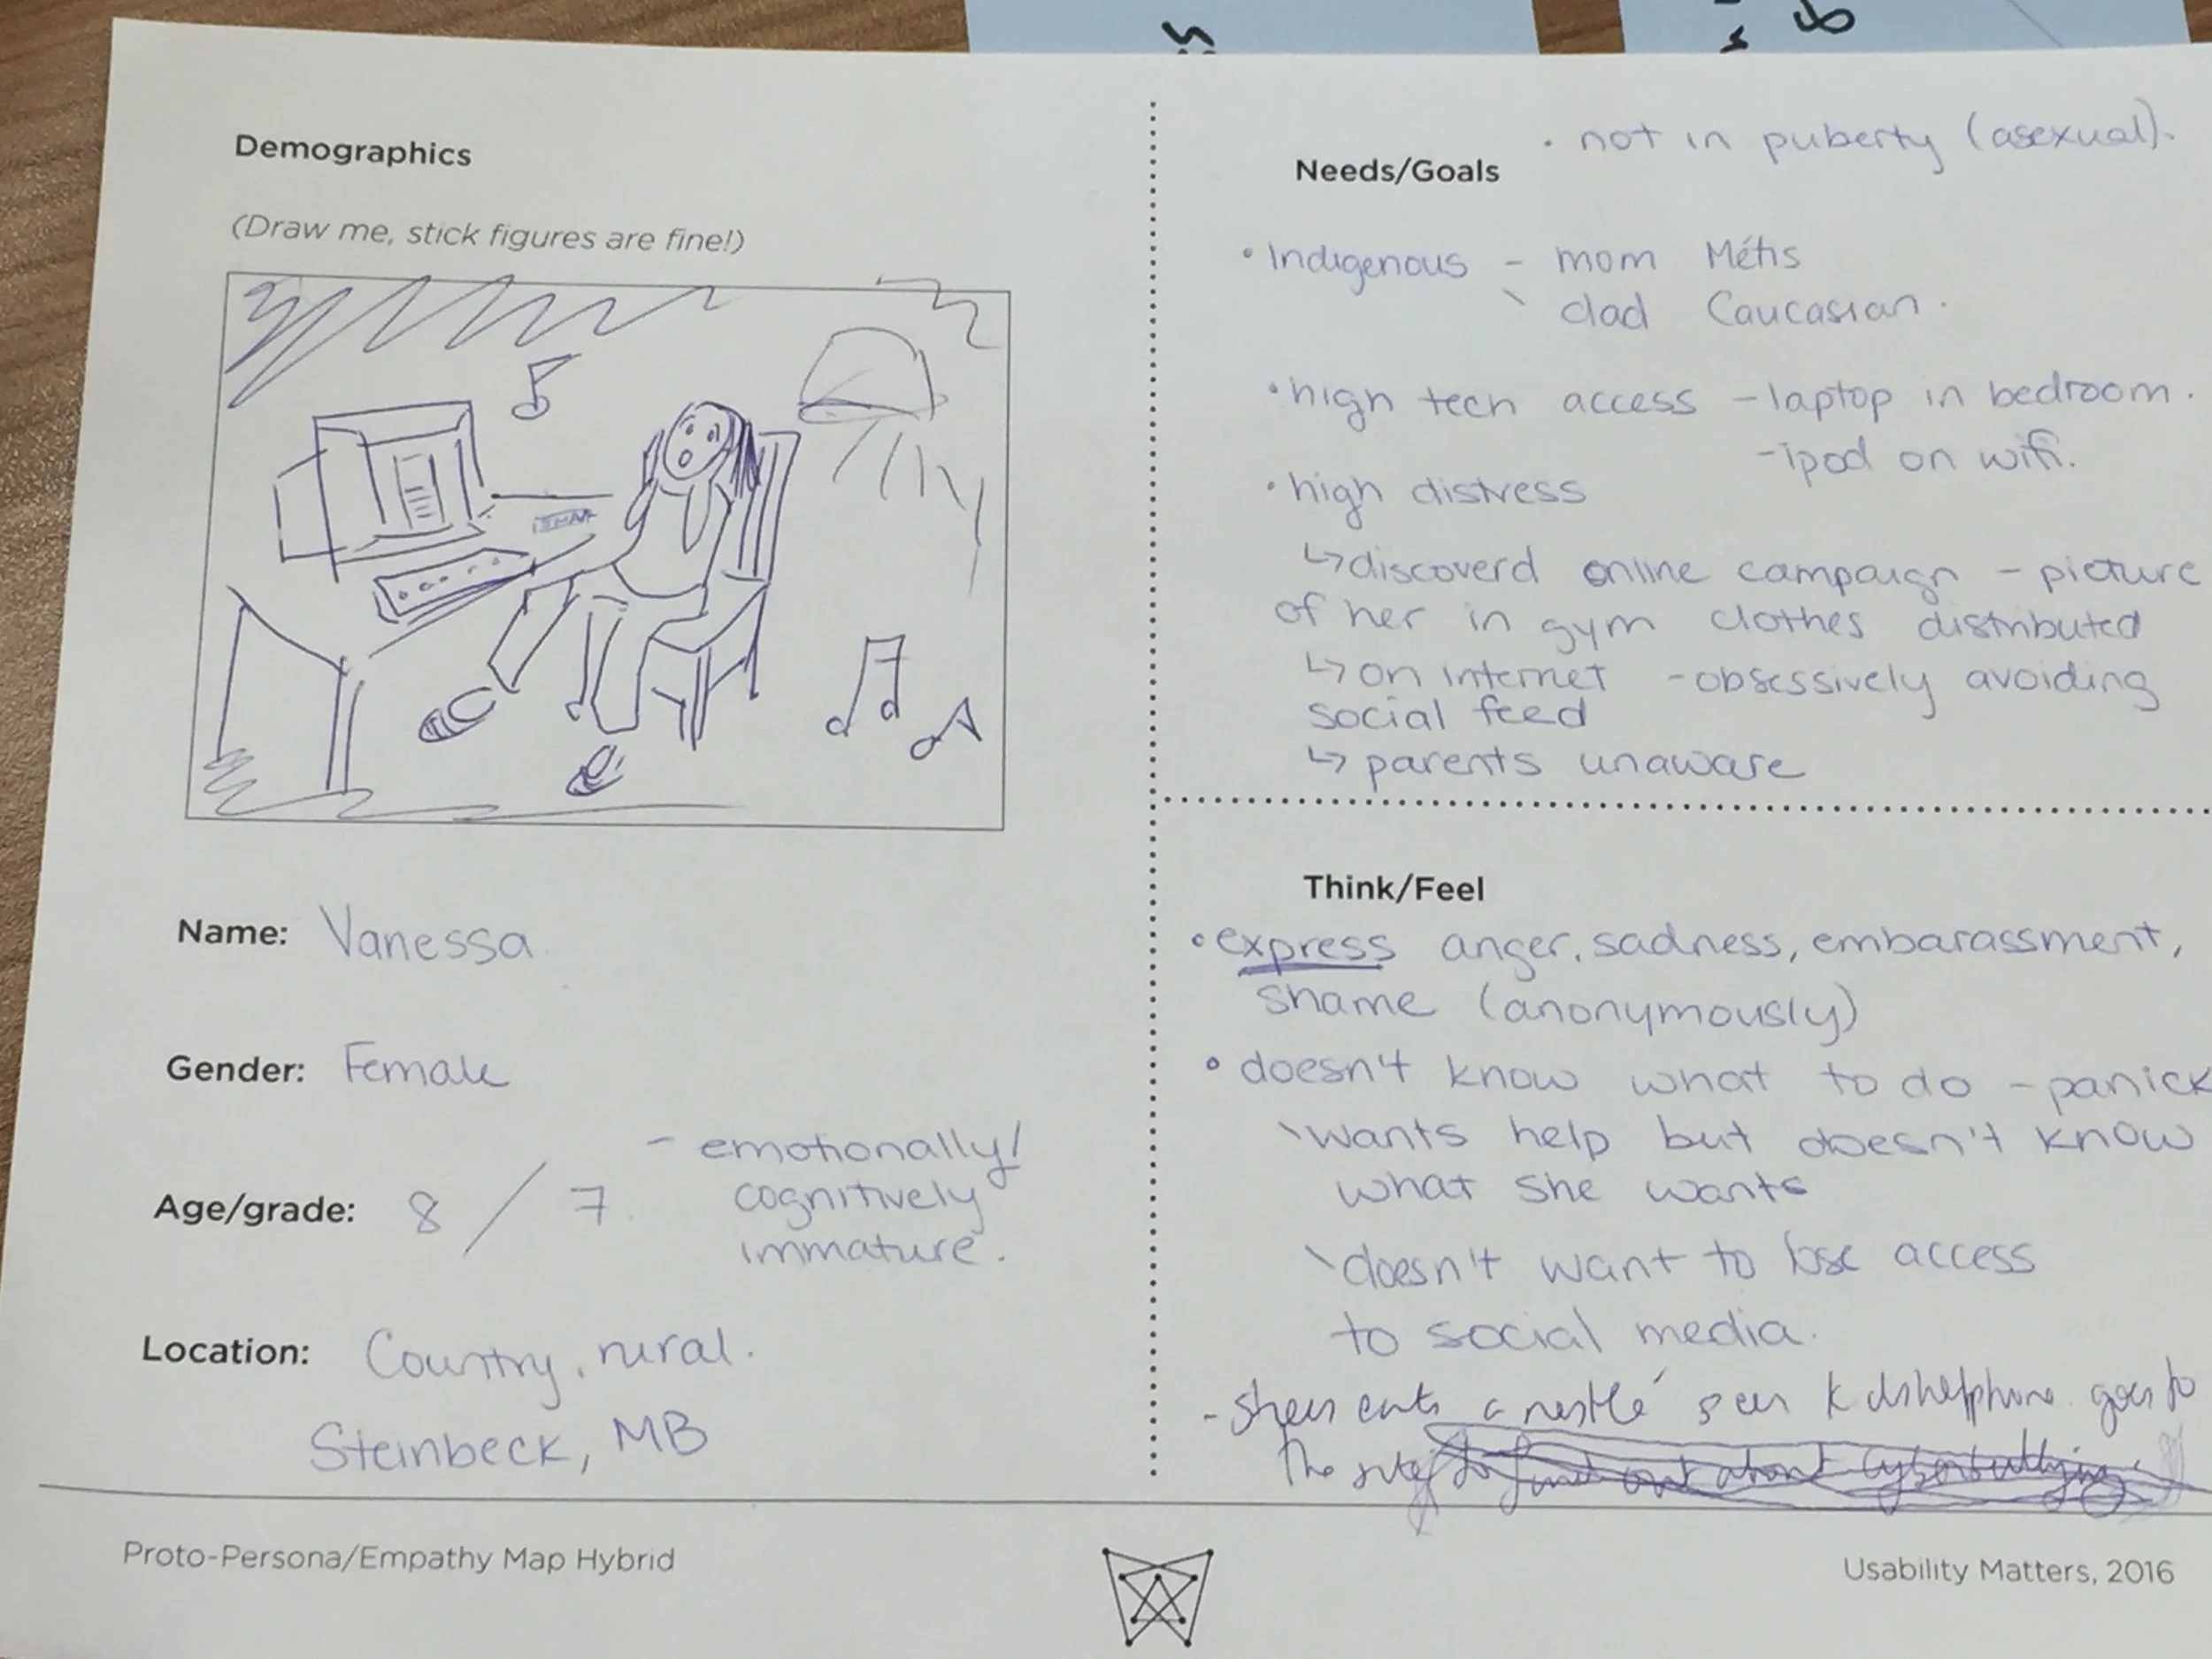 Demographics
(Draw me, stick figures are fine!)
Name: Vanessa
Gender: Female
Age/grade: 8 / 7 - emotionally/
cognitively
immature.
Location: Country, rural.
Steinbeck, MB
Needs/Goals
• not in puberty (asexual).
• Indigenous - mom Métis
\ dad Caucasian.
• high tech access - laptop in bedroom.
- ipod on wifi.
• high distress
↳ discoverd online campaign - picture
of her in gym clothes distributed
↳ on internet - obsessively avoiding
social feed
↳ parents unaware
Think/Feel
• express anger, sadness, embarassment,
shame (anonymously)
• doesn't know what to do - panick
\ wants help but doesn't know
what she wants
\ doesn't want to lose access
to social media.
- eats a nestlé sees Kidshelpphone goes to
The site to find out about cyberbullying.
Proto-Persona/Empathy Map Hybrid
Usability Matters, 2016